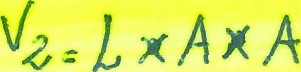 V₂ = L × A × A